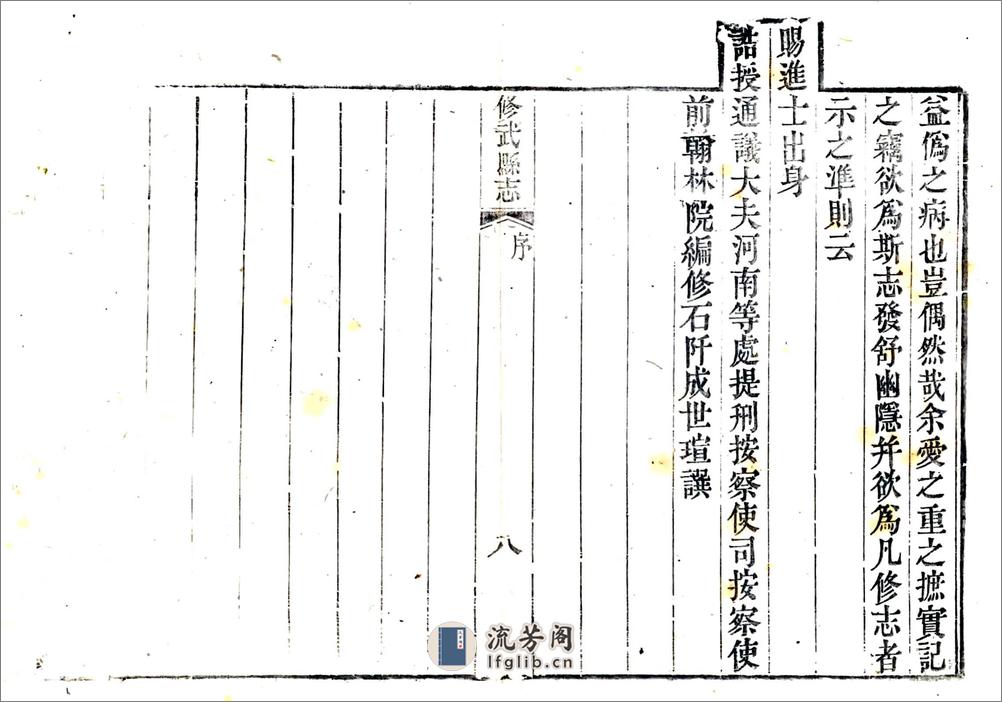 益僞之病也豈偶然哉余愛之重之摭實記
之竊欲爲斯志發舒幽隱幷欲爲凡修志者
示之準則云
賜進士出身
誥授通議大夫河南等處提刑按察使司按察使
前翰林院編修石阡成世瑄譔
修武縣志
序
八
流芳阁
lfglib.cn